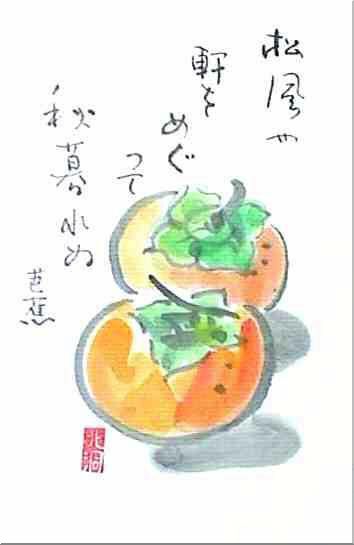 松風や
軒を
めぐ
つて
秋暮れぬ
芭蕉